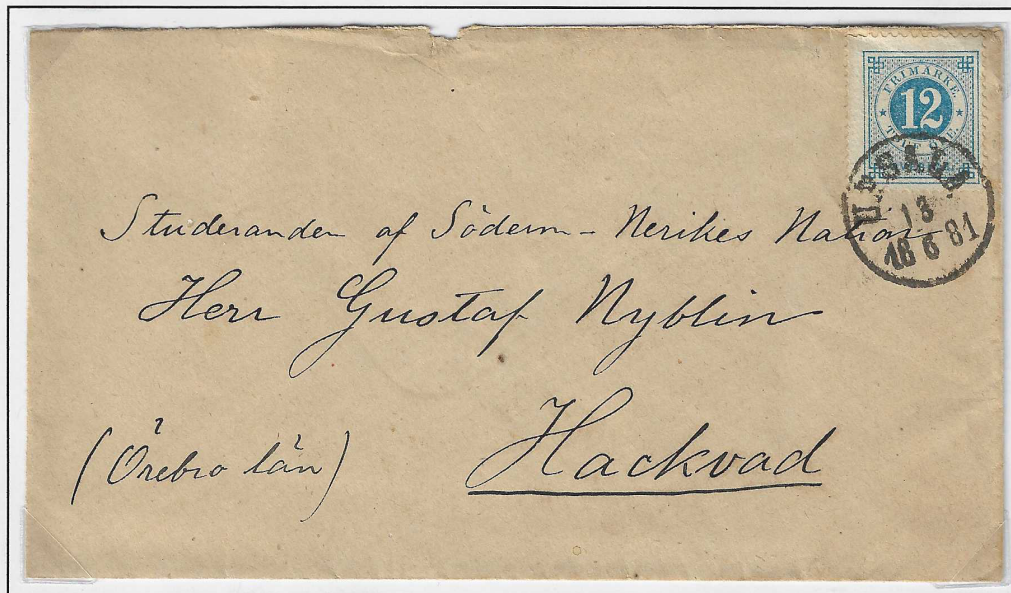 FRIMÄRKE.
12
UPSALA
13
18 6 81
Studeranden af Söderm-Nerikes Nation
Herr Gustaf Nyblin
Hackvad
(Örebro län)